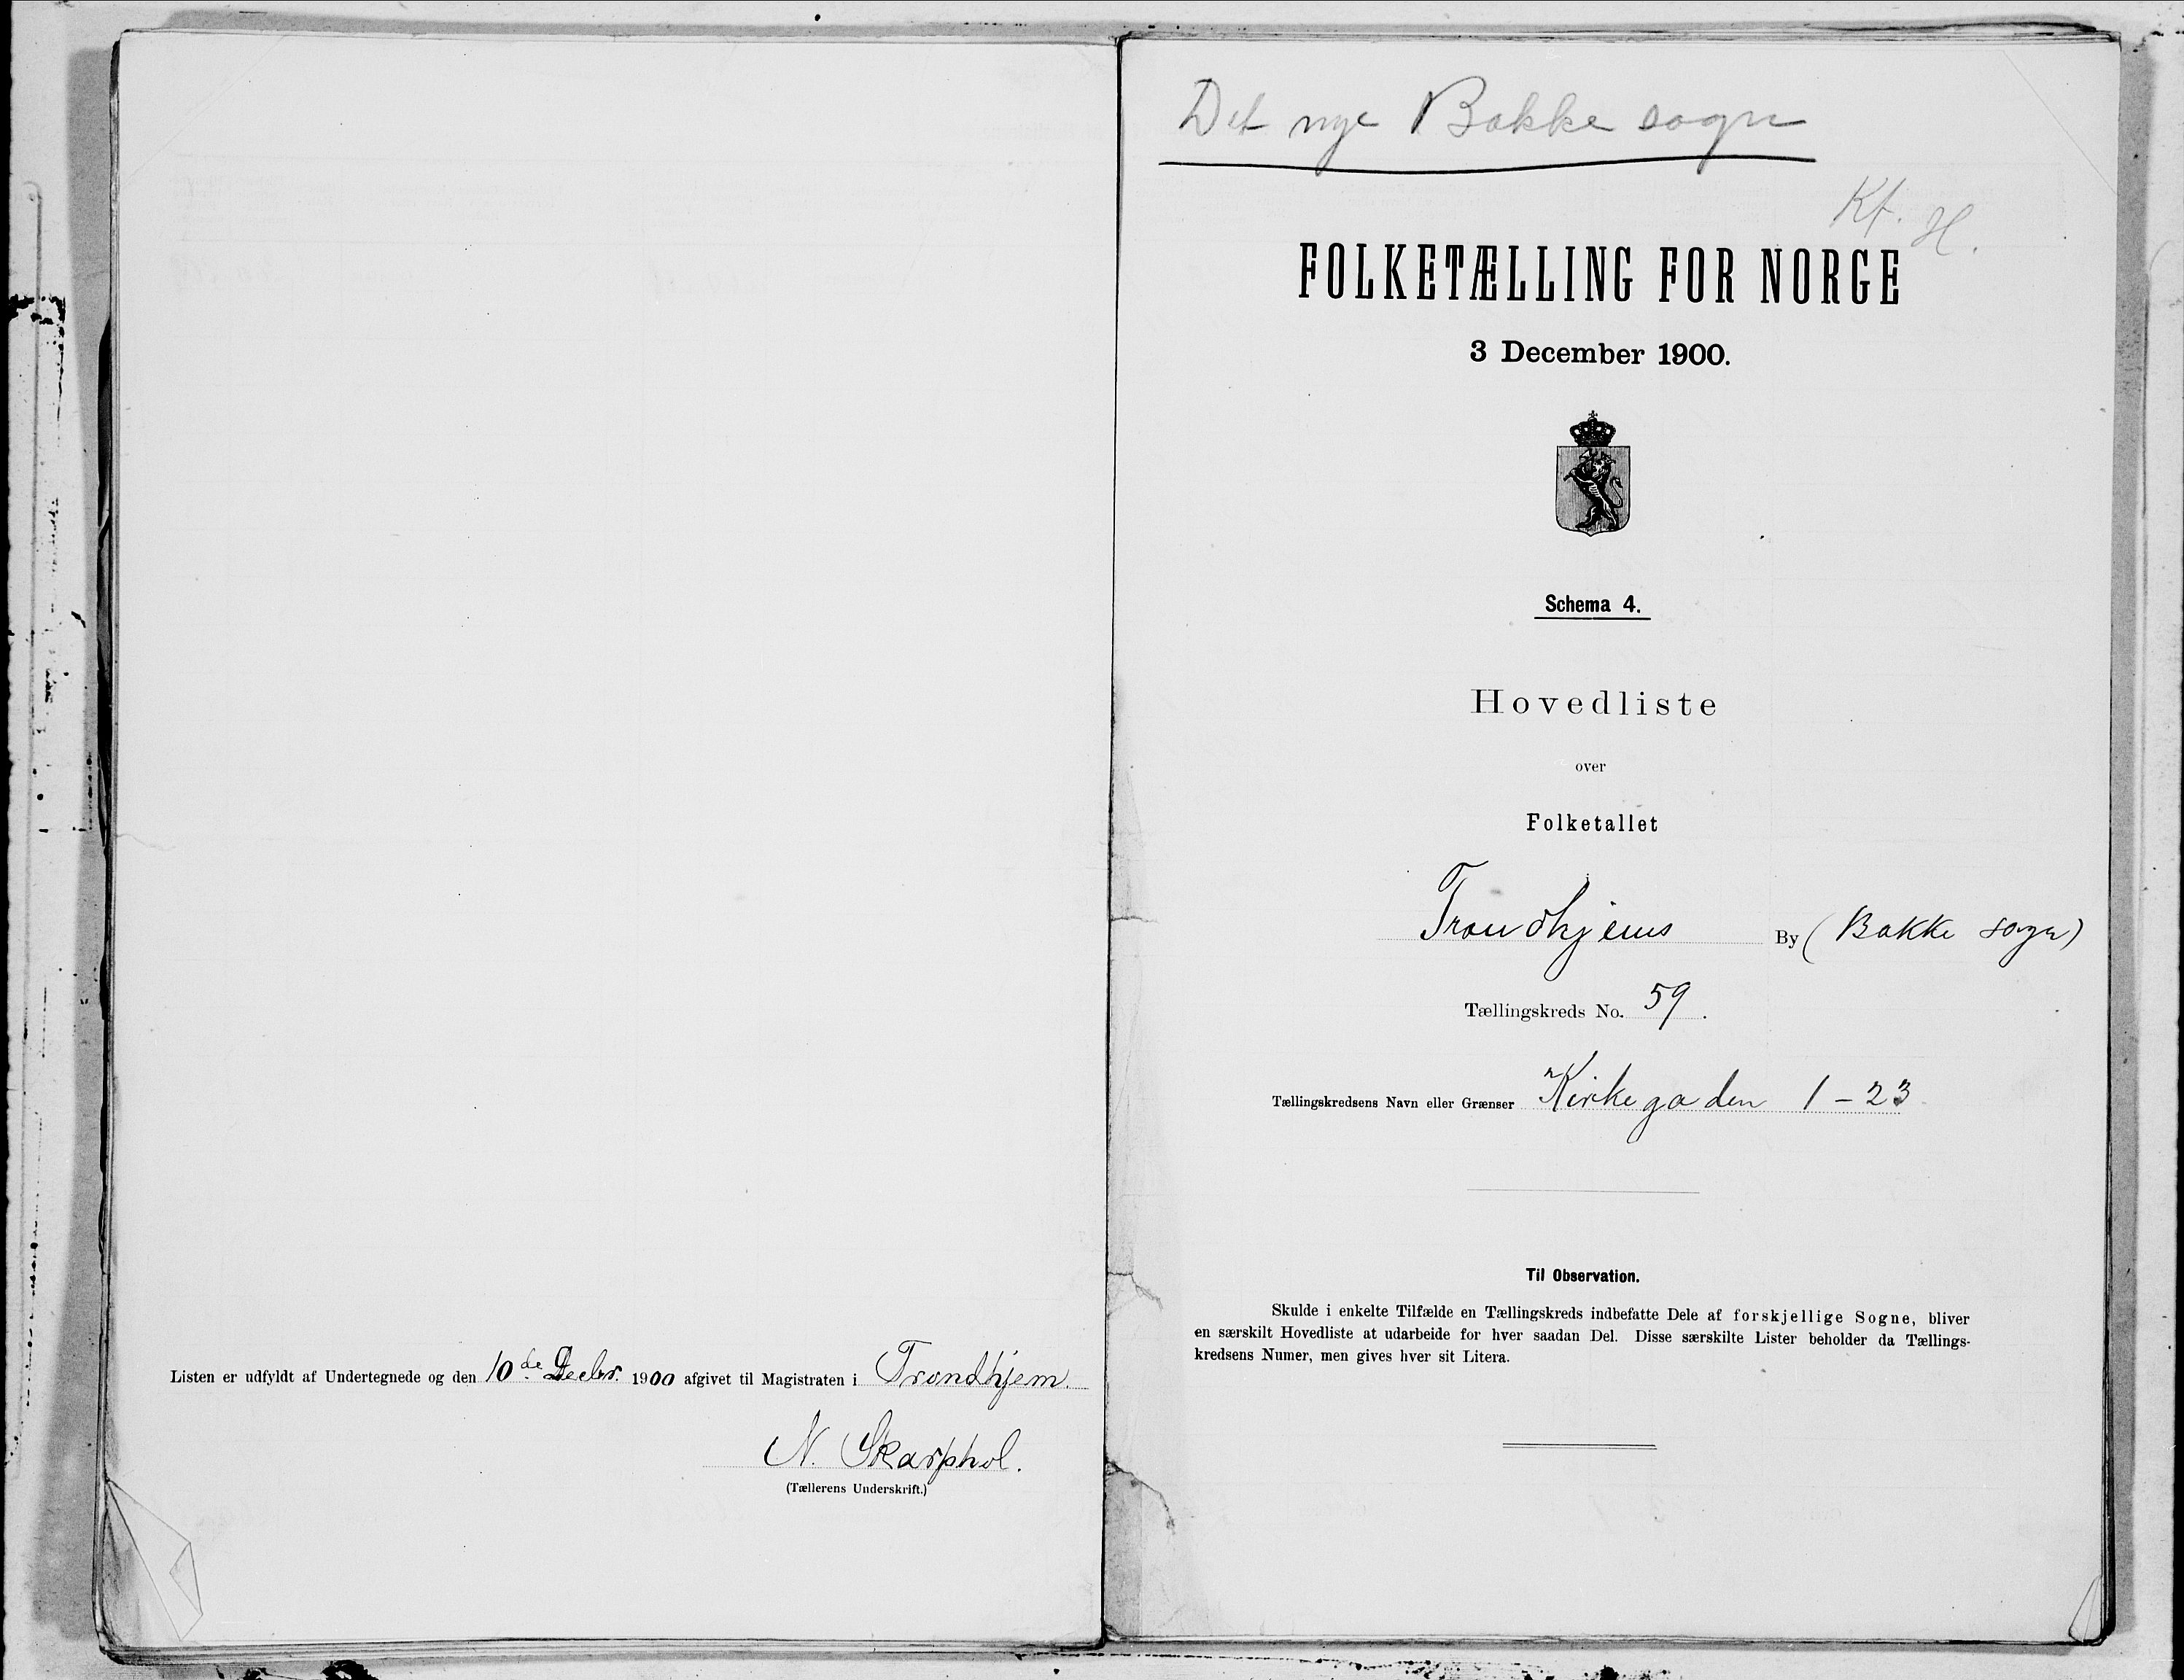 Listen er udfyldt af Undertegnede og den 10de Decbr. 1900 afgivet til Magistraten i Trondhjem.
N. Skarphol.
(Tællerens Underskrift.)
Det nye Bakke sogn
Kf. H.
FOLKETÆLLING FOR NORGE
3 December 1900.
Schema 4.
Hovedliste
over
Folketallet
Trondhjems By (Bakke sogn)
Tællingskreds No. 59.
Tællingskredsens Navn eller Grænser Kirkegaden 1-23
Til Observation.
Skulde i enkelte Tilfælde en Tællingskreds indbefatte Dele af forskjellige Sogne, bliver
en særskilt Hovedliste at udarbeide for hver saadan Del. Disse særskilte Lister beholder da Tællings-
kredsens Numer, men gives hver sit Litera.